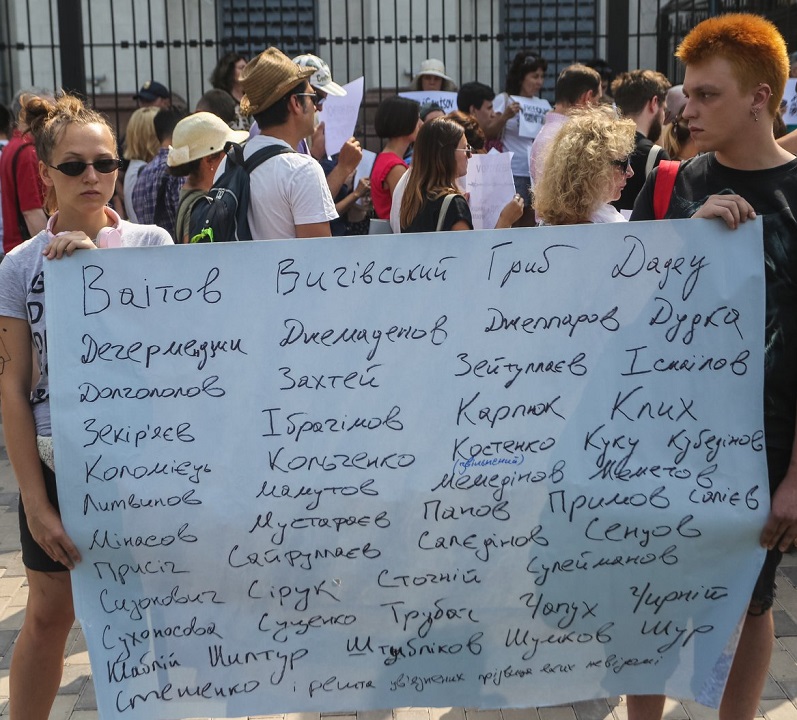 Ваітов Вигівський Гриб Дадеу
Дегерменджи Джемаденов Джеппаров Дудка
Долгополов Захтей Зейтуллаєв Ісмаілов
Зекір'яєв Ібрагімов Карпюк Клих
Коломієць Кольченко Костенко Куку Кубедінов
(звільнений)
Литвинов Мамутов Мемедінов Меметов
Мінасов Мустафаєв Панов Примов Салієв
Присіч Сайфуллаєв Салєдінов Сенцов
Сизонович Сірук Стогній Сулейманов
Сухоносова Сущенко Трубач Чапух Чирній
Шаблій Шиптур Штибліков Шумков Шур
Стешенко і решта ув'язнених прізвища яких невідомі